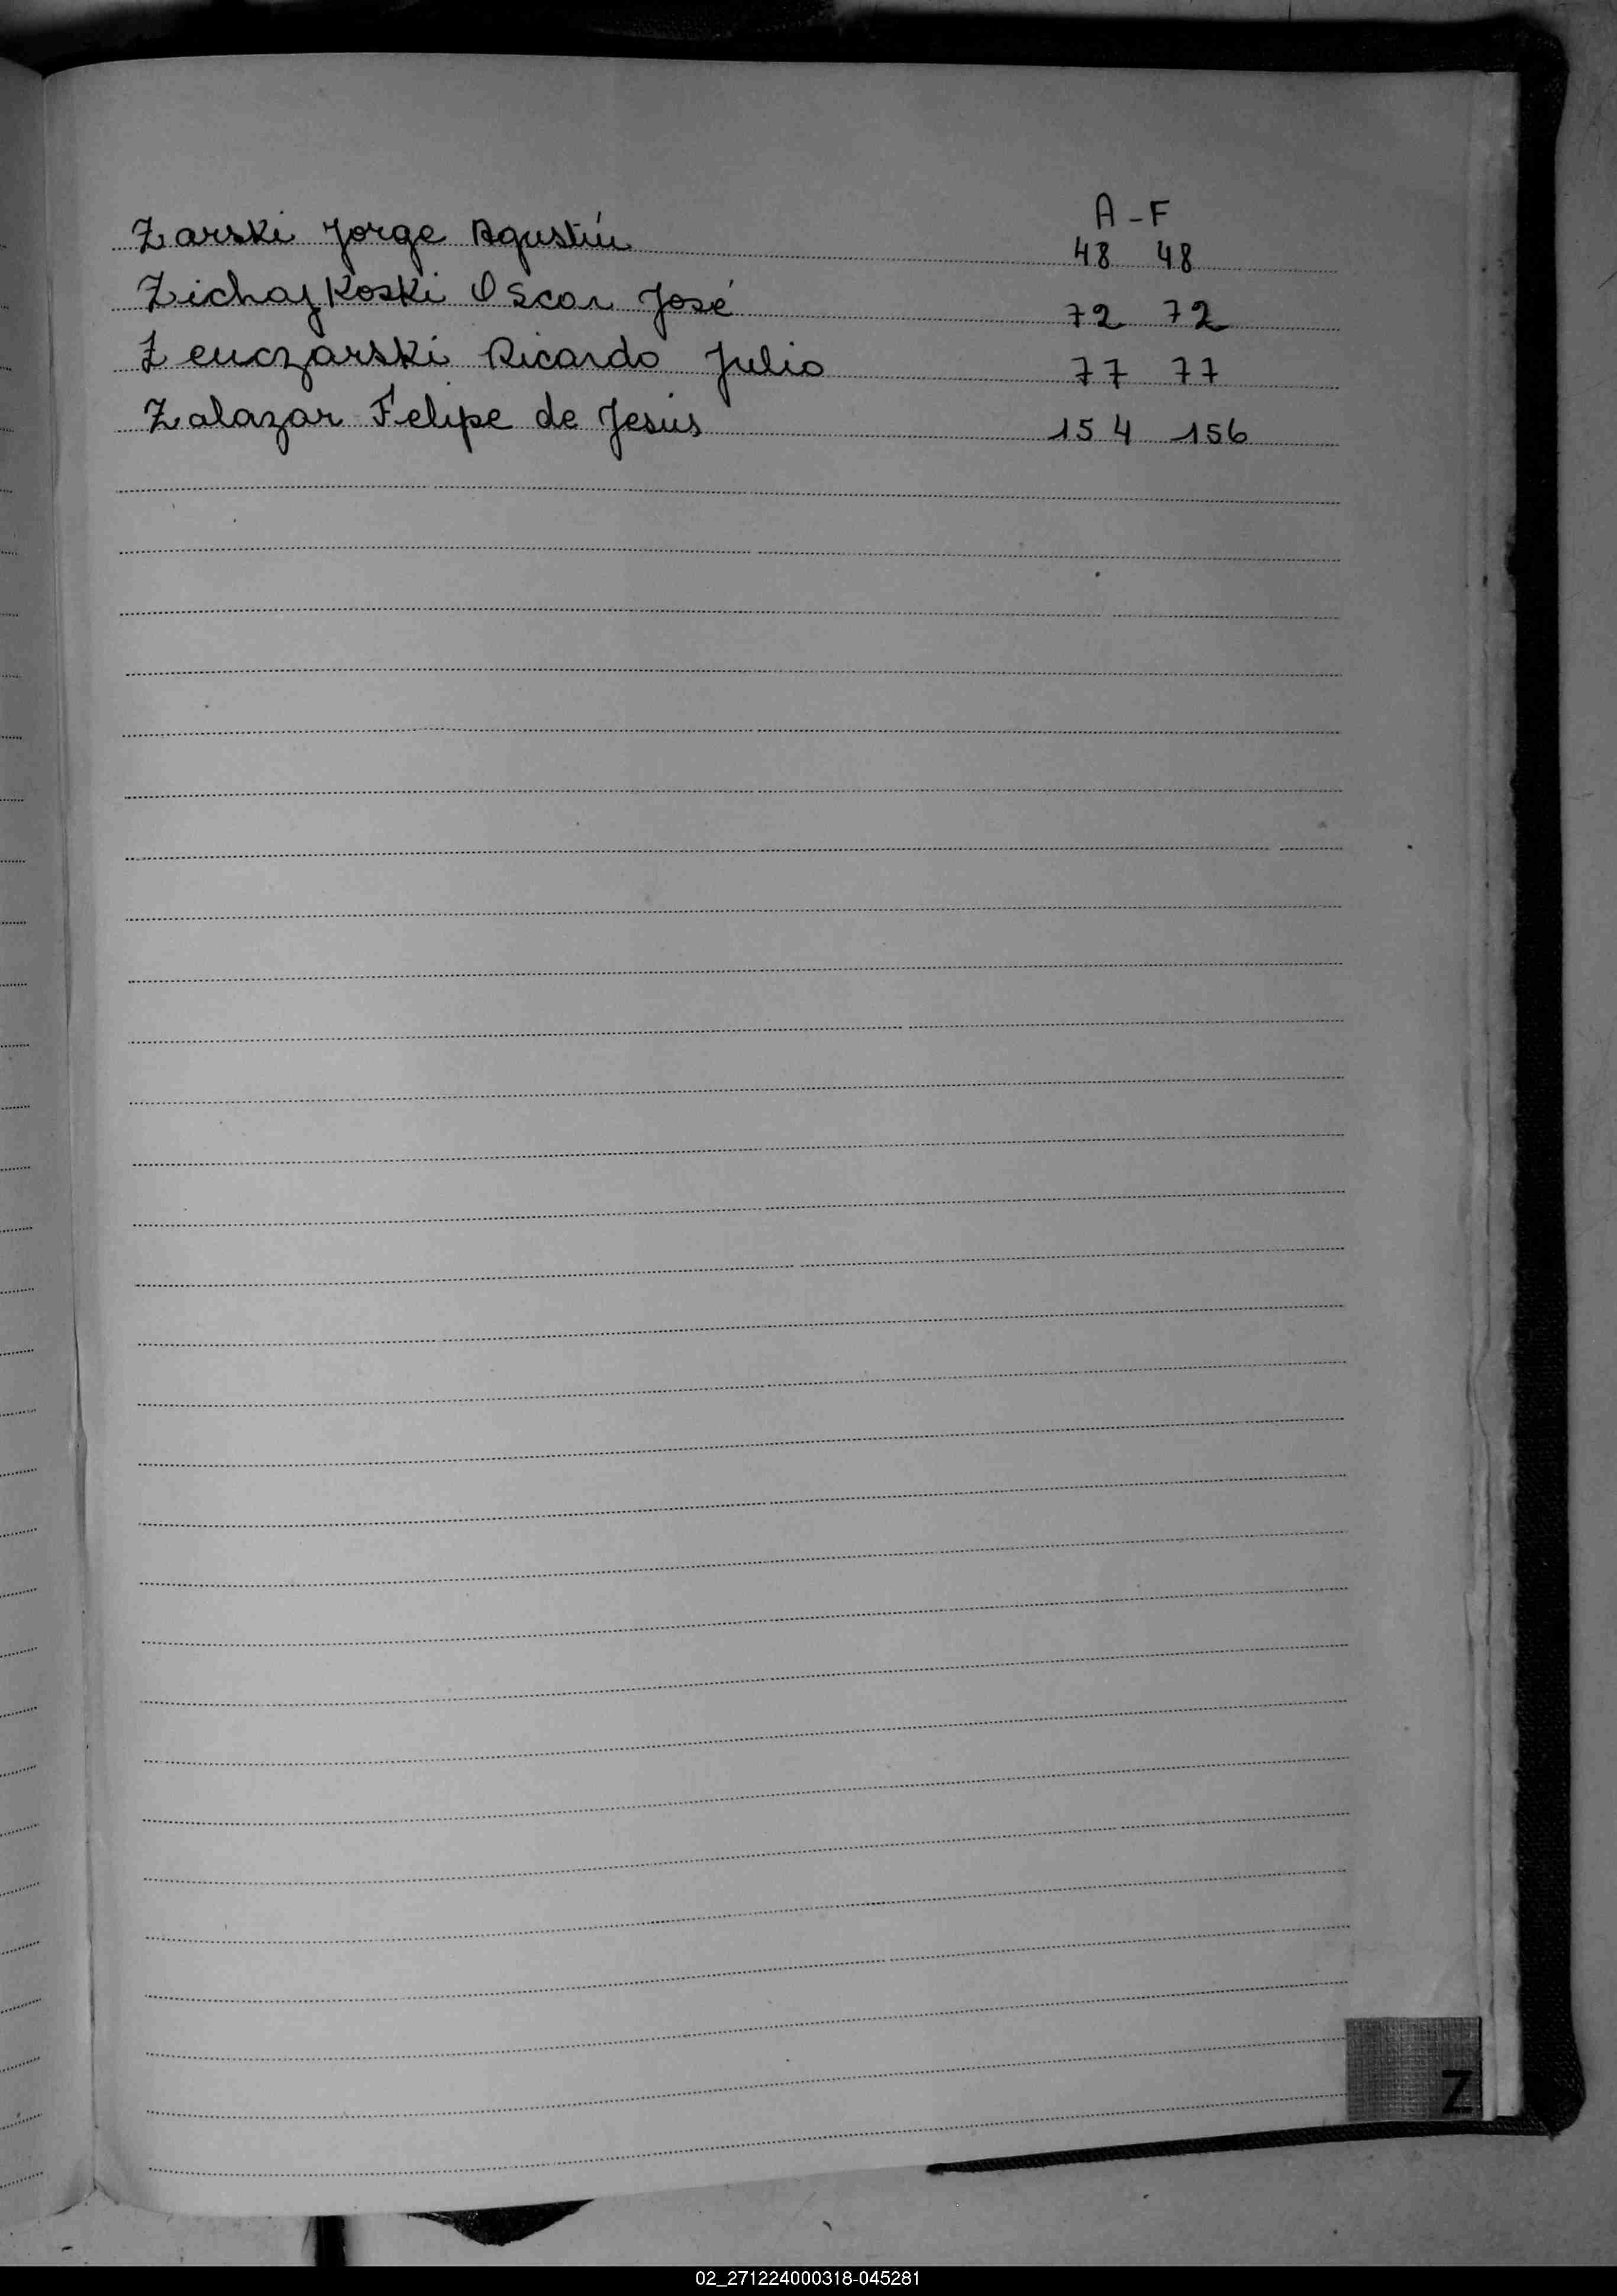 A - F
Zarski Jorge Agustín 48 48
Zichajkoski Oscar José 72 72
Zenczarski Ricardo Julio 77 77
Zalazar Felipe de Jesús 154 156
Z
02_271224000318-045281